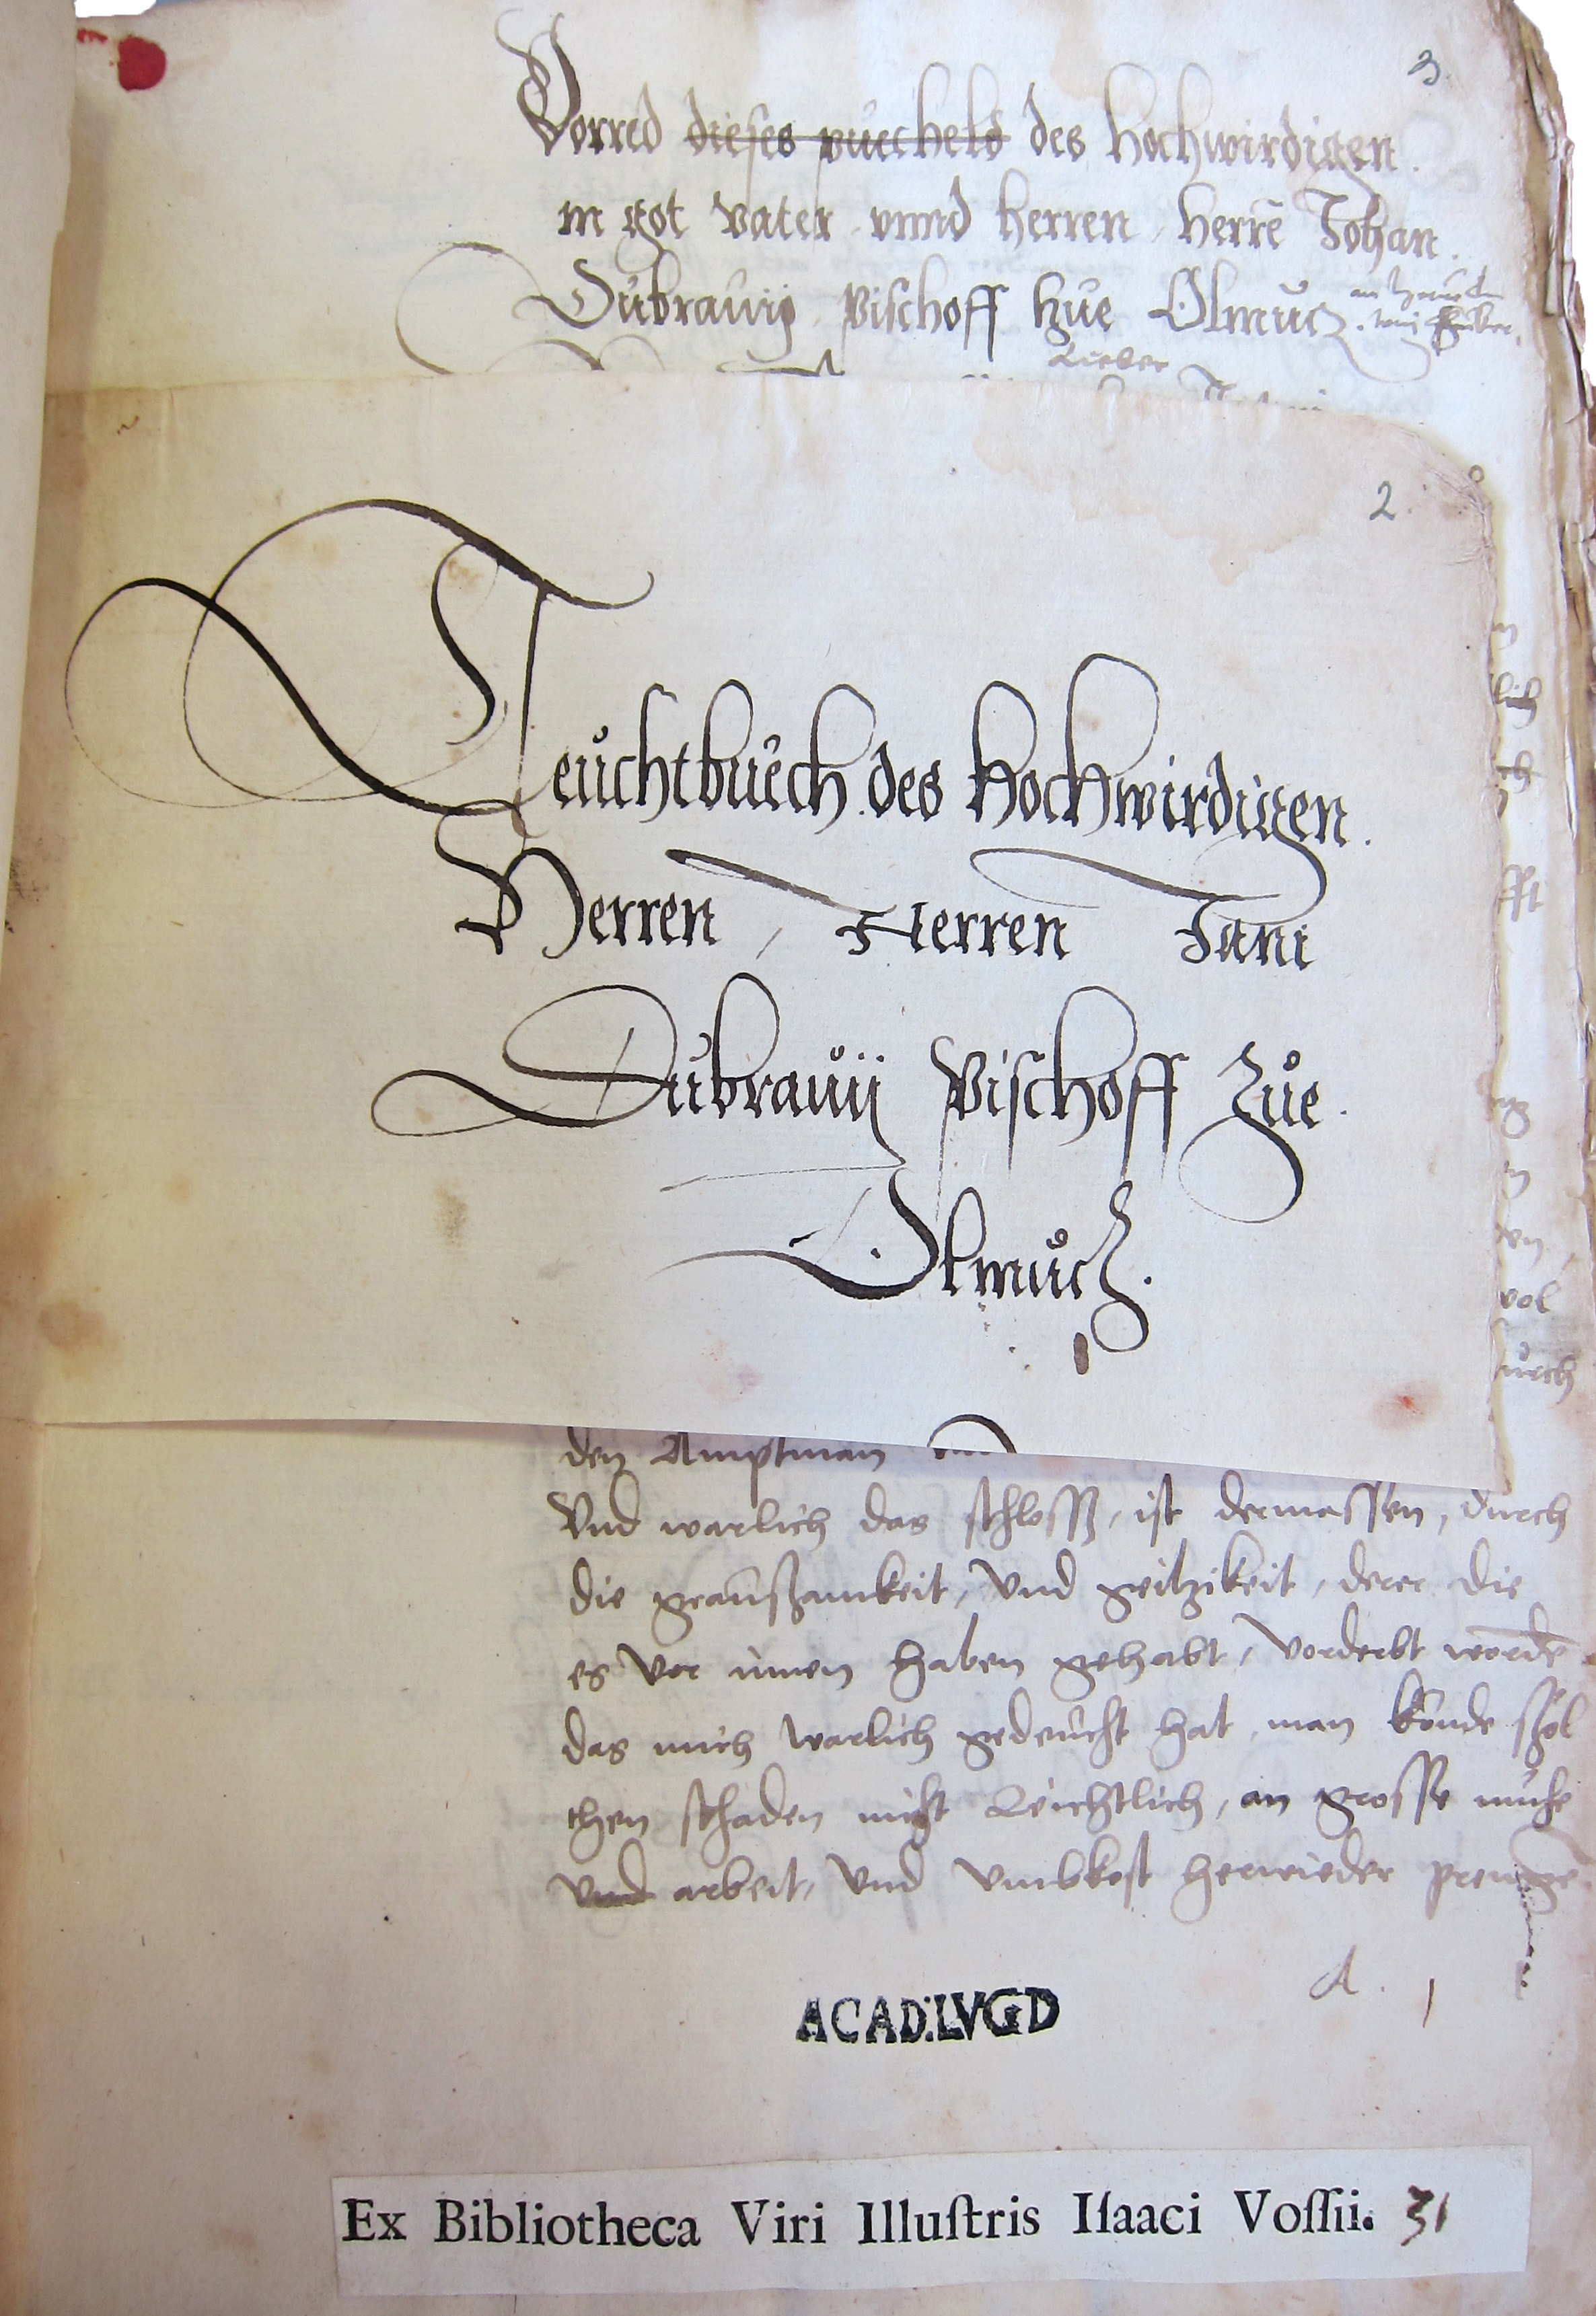 3.
Vorred dieses puechels des Hochwirdigen.
in got vater vnnd herren, herrē Johan.
Dubrauij Vischoff zue Olmucz.
Lieber
2
Teuchtbuech des Hochwirdigen.
Herren, Herren Jani
Dubrauij Vischoff Zue.
Olmucz.
lich
ch
fft
en
vol
durch
den Amptman
Vnd warlich das schlossz, ist dermassen, durch
die graußamkeit, Vnd geitzikeit, derer die
es vor innen haben gehabt, Vorderbt wordē
das mich warlich gedeucht hat, man konde sol
chen schaden nicht Leichtlich, an grosse muhe
vnd arbeit, Vnd Vnubkost herwieder prengē
A.
ACAD:LVGD
Ex Bibliotheca Viri Illuſtris Iſaaci Voſſii. 31